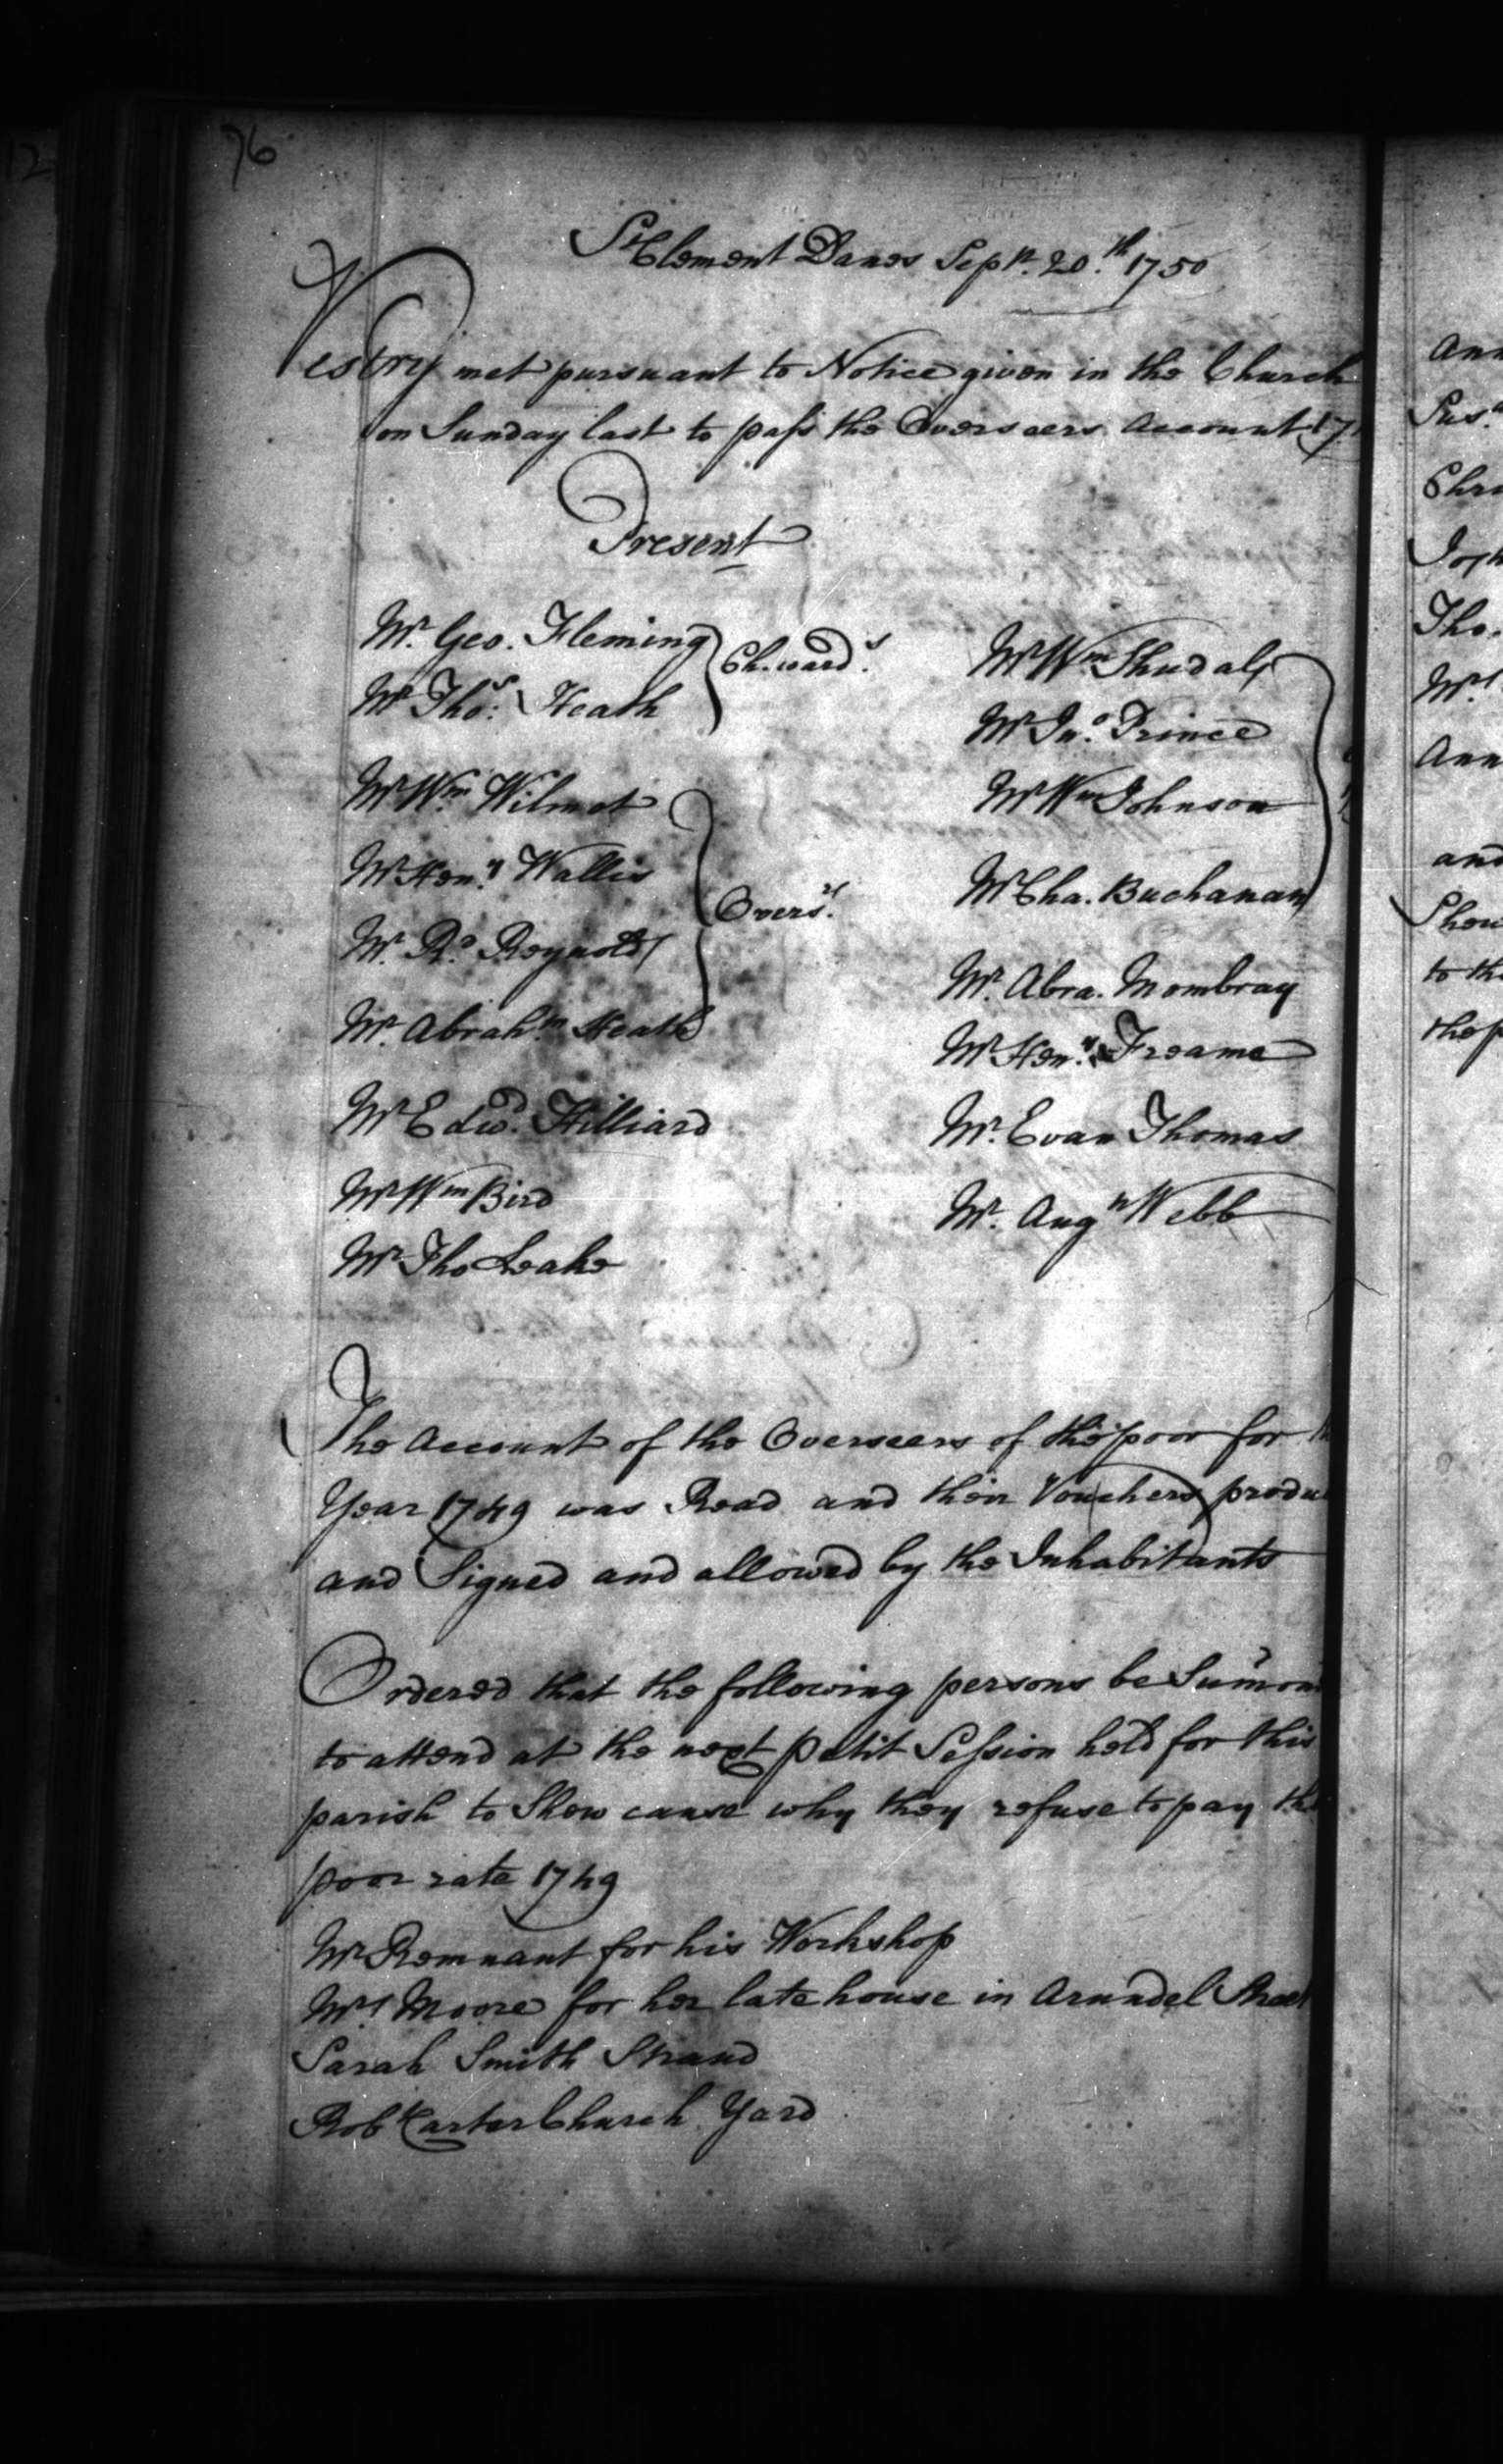 76
St Clement Danes Sepr. 20th. 1750
Vestry met pursuant to Notice given in the Church
on Sunday last to pass the Overseers Account
Present
Mr. Geo. Fleming
Mr. Thos. Heath
Ch.wards.
Mr Wm. Wilmot
Mr Heny. Wallis
Mr. Rd. Reynolds
Mr. Abrahm. Heath
Overs.rs
Mr Edwd. Hilliard
Mr Wm Bird
Mr Tho Leake
Mr Wm
Mr Jno. Prince
Mr Wm Johnson
Mr Cha. Buchanan
Mr. Abra. Mombray
Mr Heny. Freame
Mr. Evan Thomas
Mr. Augn Webb
The Account of the Overseers of the poor for
Year 1749 was Read and their Vouchers
and Signed and allowed by the Inhabitants
Ordered that the following persons be
to attend at the next Petit Session held for this
parish to Shew cause why they refuse to pay the
poor rate 1749
Mr Remnant for his Workshop
Mrs. Moore for her late house in Arundel Street
Sarah Smith Strand
Robt Carter Church Yard